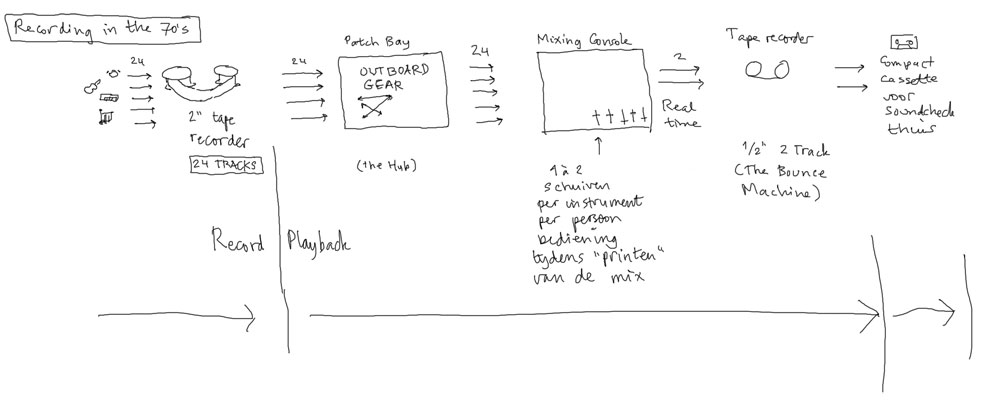 Recording in the 70's
24
2" tape
recorder
24 TRACKS
24
Patch Bay
OUTBOARD
GEAR
(the Hub)
24
Mixing Console
1 à 2
schuiven
per instrument
per persoon
bediening
tijdens "printen"
van de mix
2
Real
time
Tape recorder
1/2" 2 Track
(The Bounce
Machine)
Compact
cassette
voor
soundcheck
thuis
Record
Playback